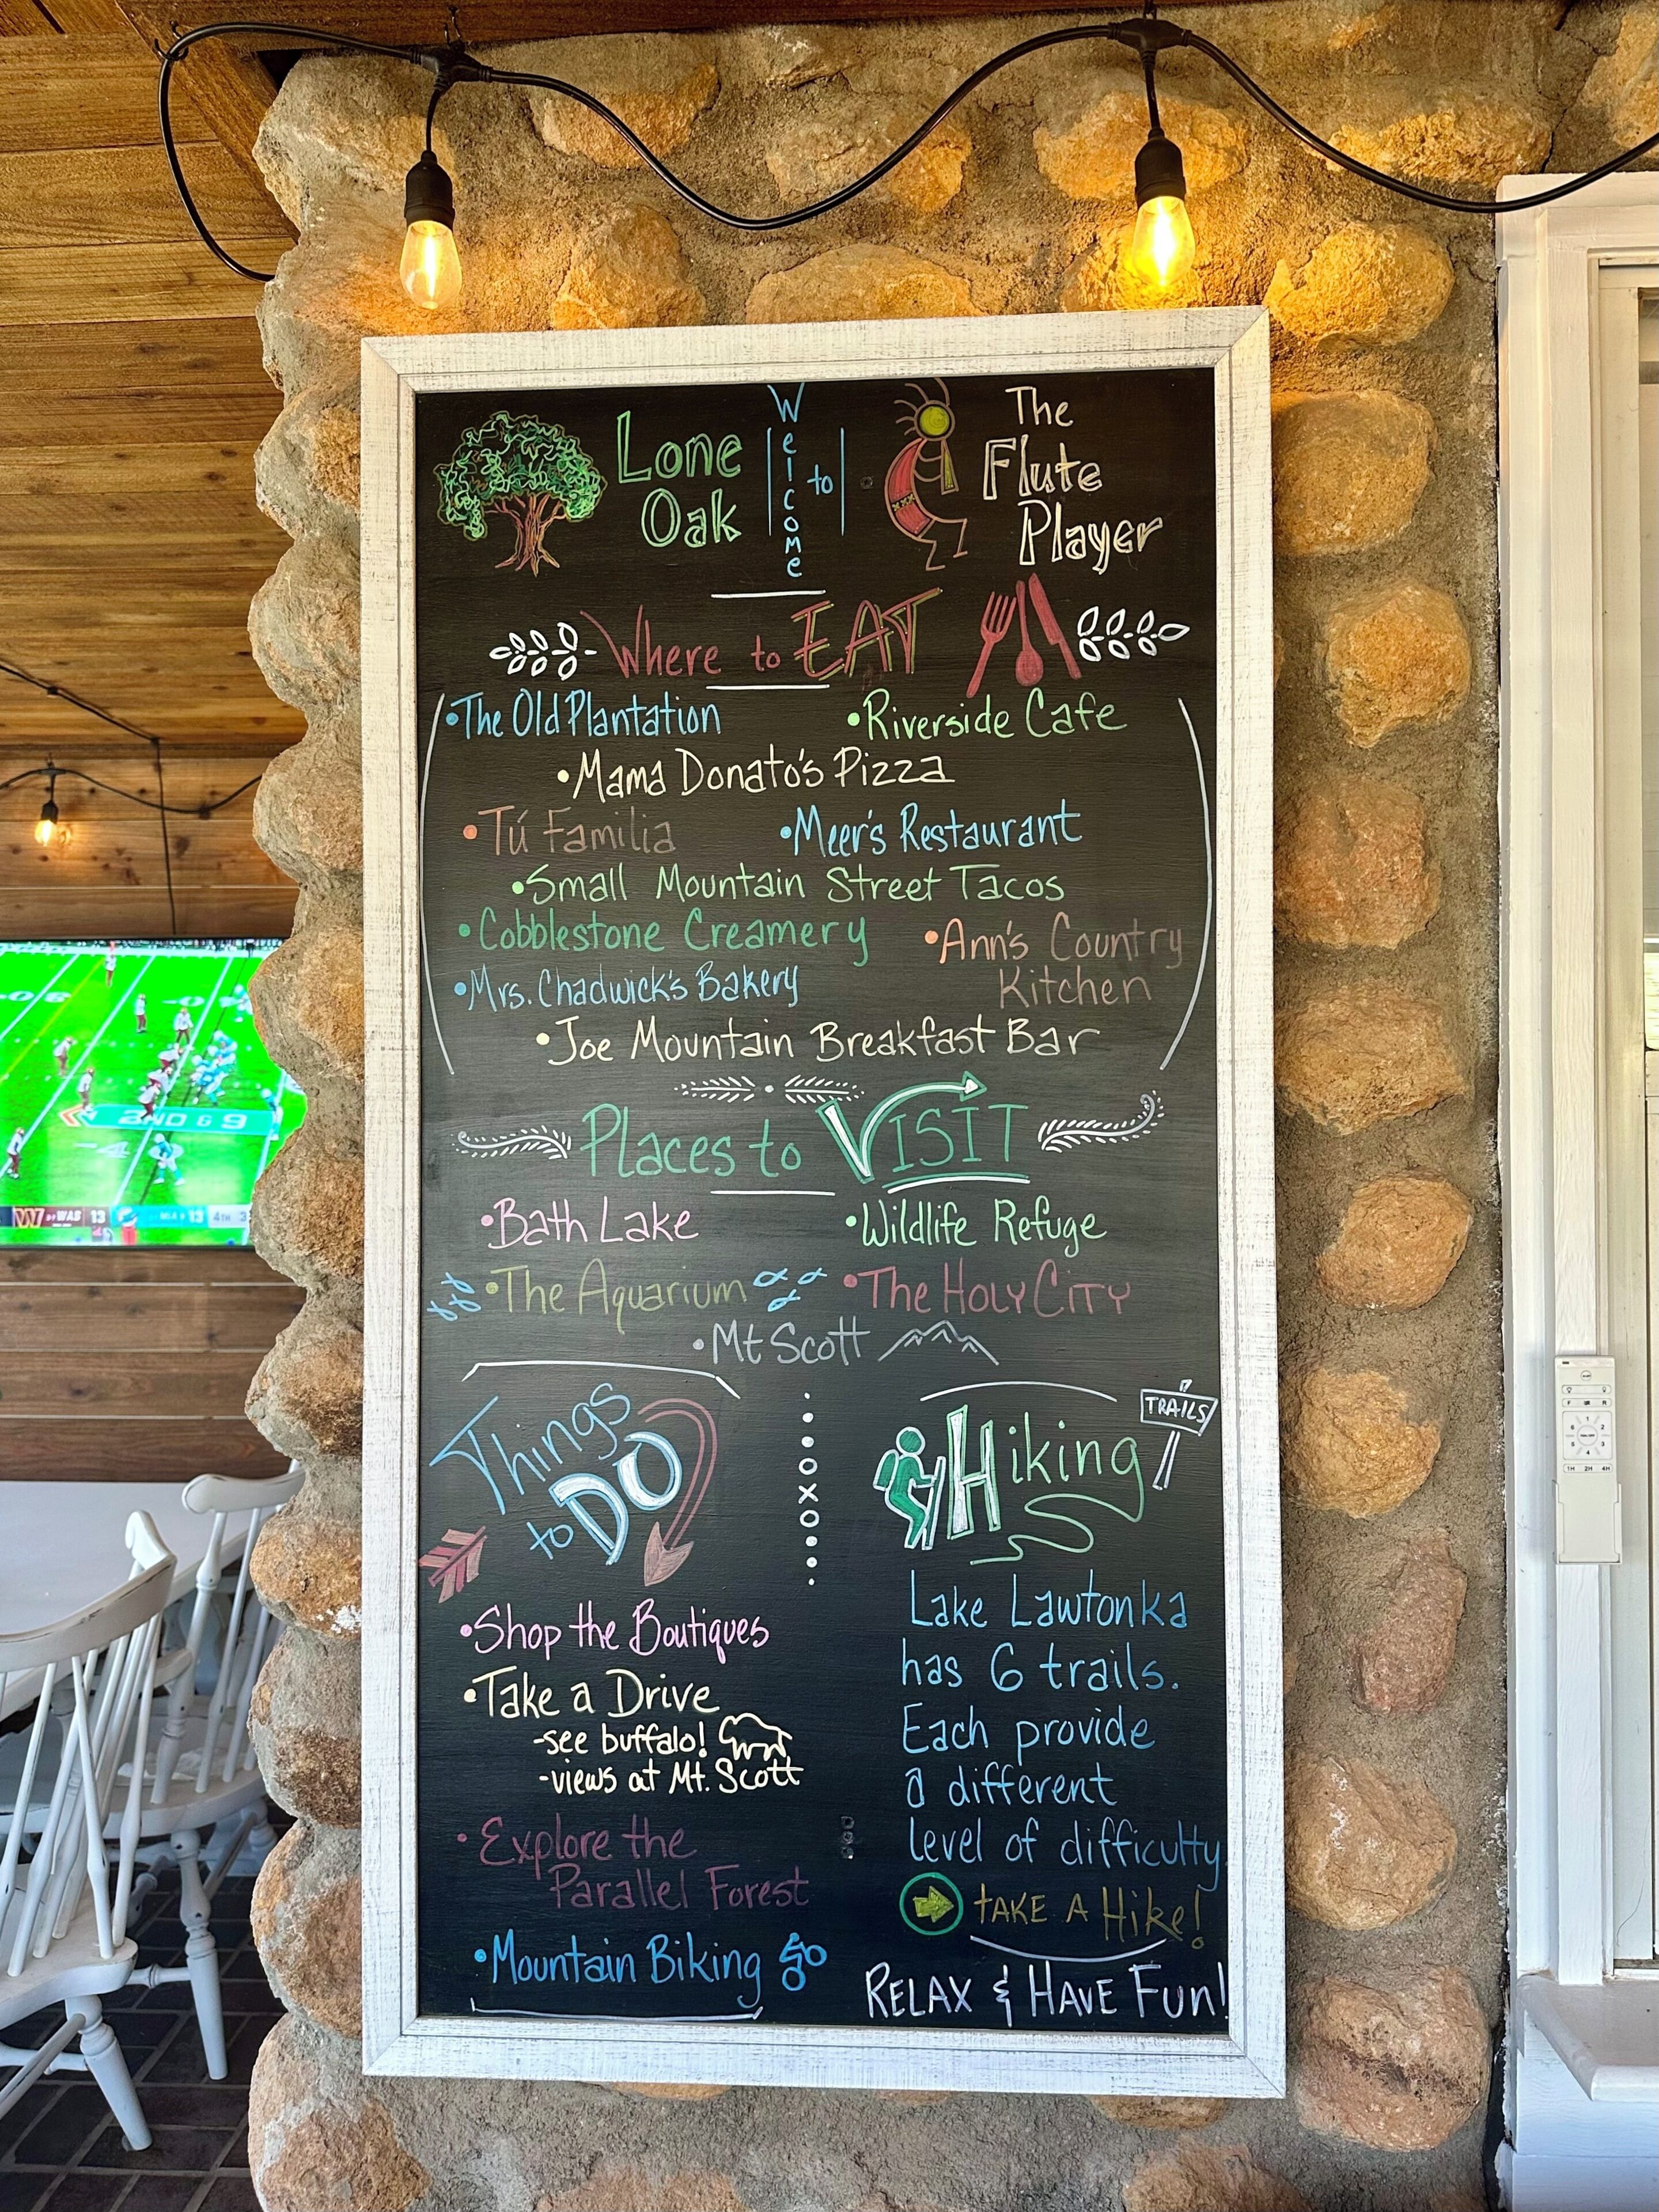 Lone Oak
Welcome to
The Flute Player
Where to EAT
•The Old Plantation
•Riverside Cafe
•Mama Donato's Pizza
•Tú Familia
•Meer's Restaurant
•Small Mountain Street Tacos
•Cobblestone Creamery
•Ann's Country
Kitchen
•Mrs. Chadwick's Bakery
•Joe Mountain Breakfast Bar
Places to VISIT
•Bath Lake
•Wildlife Refuge
•The Aquarium
•The Holy City
•Mt Scott
Things
to DO
•Shop the Boutiques
•Take a Drive
-see buffalo!
-views at Mt. Scott
•Explore the
Parallel Forest
•Mountain Biking
Hiking
TRAILS
Lake Lawtonka
has 6 trails.
Each provide
a different
level of difficulty
TAKE A Hike!
RELAX & HAVE FUN!
2ND & 9
WAS 13
MIA 13
4TH